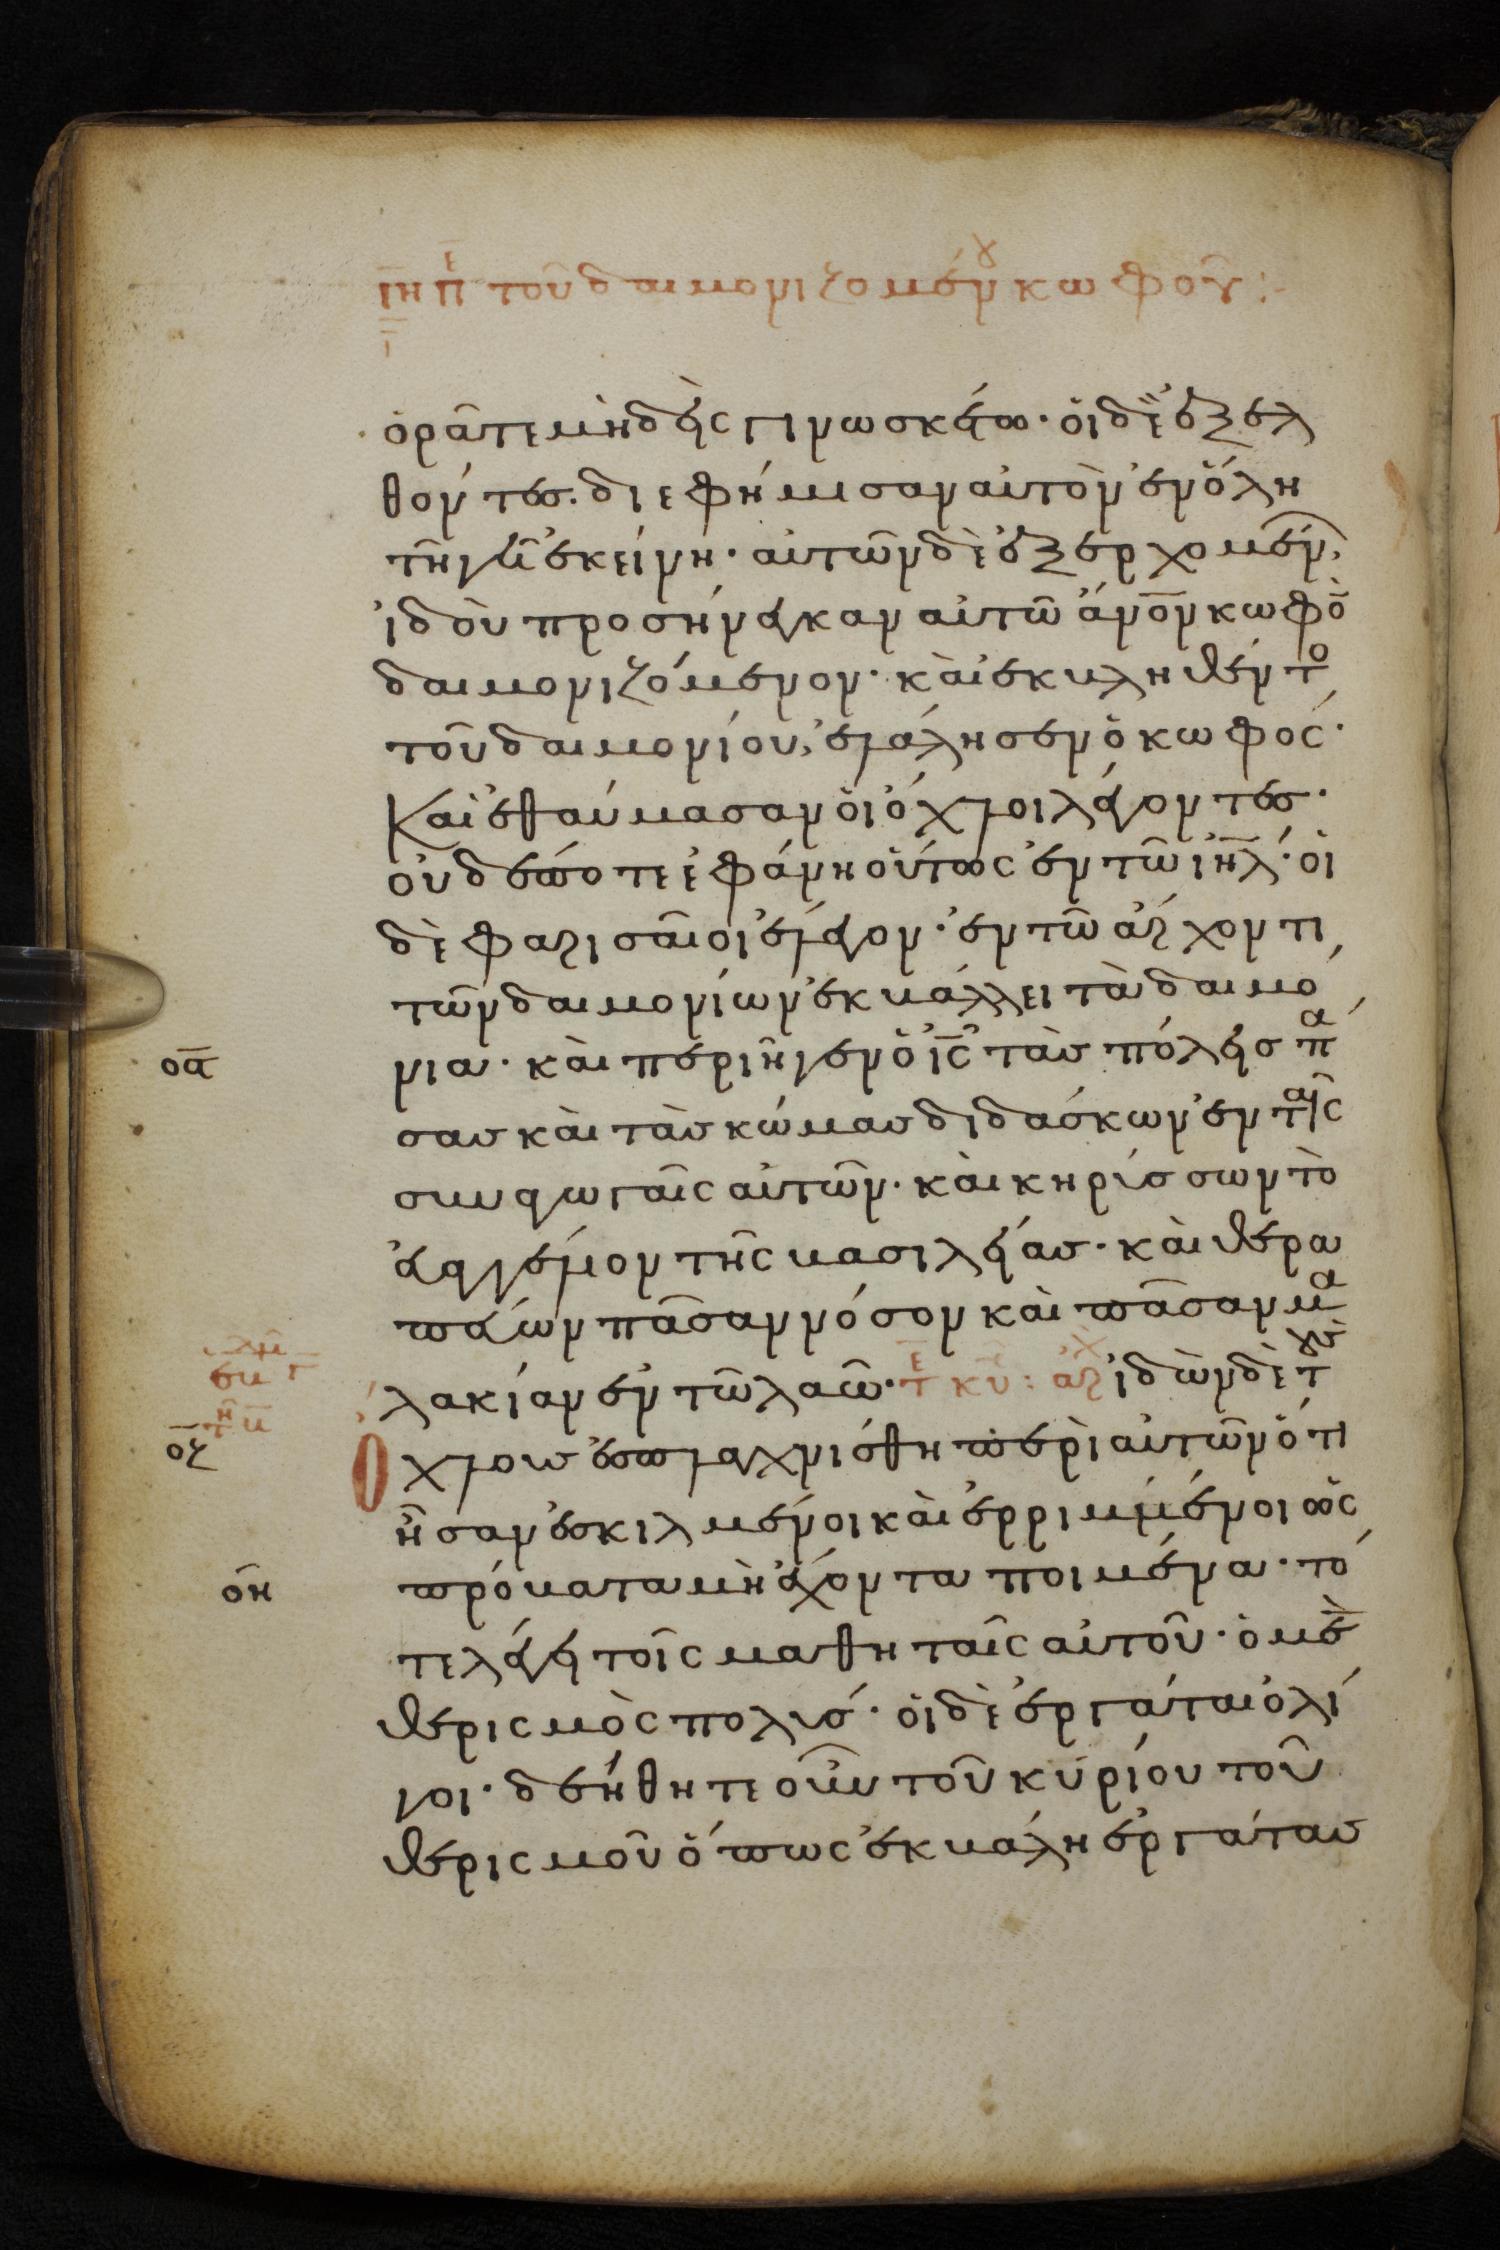 ιη πε τοῦ δαιμονιζομένου κωφοῦ:
ι
ὁρᾶτε μὴδεὶς γινωσκέτω· ὁι δὲ ἐξελ
θόντες. διεφήμισαν αὐτὸν ἐν ὅλη
τῆ γῆ ἐκείνη· αὐτῶν δὲ ἐξερχομέν,
ἰδοὺ προσήνεγκαν αὐτῶ ἄνον κωφὸ
δαιμονιζόμενον· κὰι ἐκβληθέντο
τοῦ δαιμονίου, ἐλάλησεν ὁ κωφός·
Καὶ ἐθαύμασαν ὁι όχλοι λέγοντες·
οὐδέποτε ἐφάνη οὕτως ἐν τῶ ιηλ· ὁι
δὲ φαρισαῖοι ἔλεγον· ἐν τῶ ἄρχοντι
τῶν δαιμονίων ἐκβάλλει τὰ δαιμό
νια· κὰι περιῆγεν ὁ ις τὰς πόλεις πα
οα
σας κὰι τὰς κώμας διδάσκων ἐν ταῖς
συναγωγαῖς αὐτῶν· κὰι κηρύσσων τὸ
ἐυαγγέλιον τῆς βασιλείας· κὰι θερα
πεύων πᾶσαν νόσον κὰι πᾶσαν μα
λακίαν ἐν τῶ λαῶ· τε κυ: αρχ ἰδὼν δὲ τοὺς
Ὀχλους ἐσπλαγχνίσθη περὶ αὐτῶν ὅτι
οζ
ἦσαν ἐσκιλμένοι κὰι ἐρριμμένοι ὡς
πρόβατα μὴ ἔχοντα ποιμένα· τό
οη
τε λέγει τοῖς μαθηταῖς αὐτοῦ· ὁ μὲ
θερισμὸς πολύς· ὁι δὲ ἐργάται ὀλί
γοι· δεήθητε οὖν τοῦ κυρίου τοῦ
θερισμοῦ ὅπως ἐκβάλη ἐργάτας